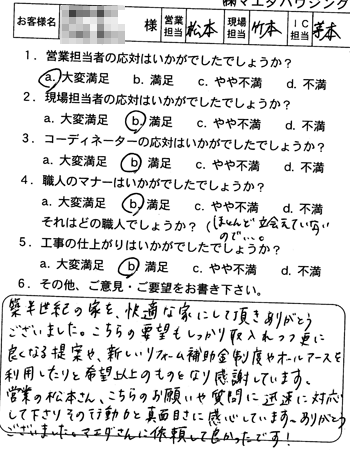 ㈱マエダハウジング
お客様名 様 営業担当 松本 現場担当 竹本 IC担当
1．営業担当者の応対はいかがでしたでしょうか？
a. 大変満足 b. 満足 c. やや不満 d. 不満
2．現場担当者の応対はいかがでしたでしょうか？
a. 大変満足 b. 満足 c. やや不満 d. 不満
3．コーディネーターの応対はいかがでしたでしょうか？
a. 大変満足 b. 満足 c. やや不満 d. 不満
4．職人のマナーはいかがでしたでしょうか？
a. 大変満足 b. 満足 c. やや不満 d. 不満
それはどの職人でしょうか？（ほとんど立会えていない
ので…。
5．工事の仕上がりはいかがでしたでしょうか？
a. 大変満足 b. 満足 c. やや不満 d. 不満
6．その他、ご意見・ご要望をお書き下さい。
築半世紀の家を、快適な家にして頂きありがとう
ございました。こちらの要望もしっかり取入れつつ更に
良くなる提案や、新しいリフォーム補助金制度やオールアースを
利用したりと希望以上のものとなり感謝しています。
営業の松本さん、こちらのお願いや質問に迅速に対応
して下さりその行動力と真面目さに感心しています。ありがとう
ございました。マエダさんに依頼して良かったです！